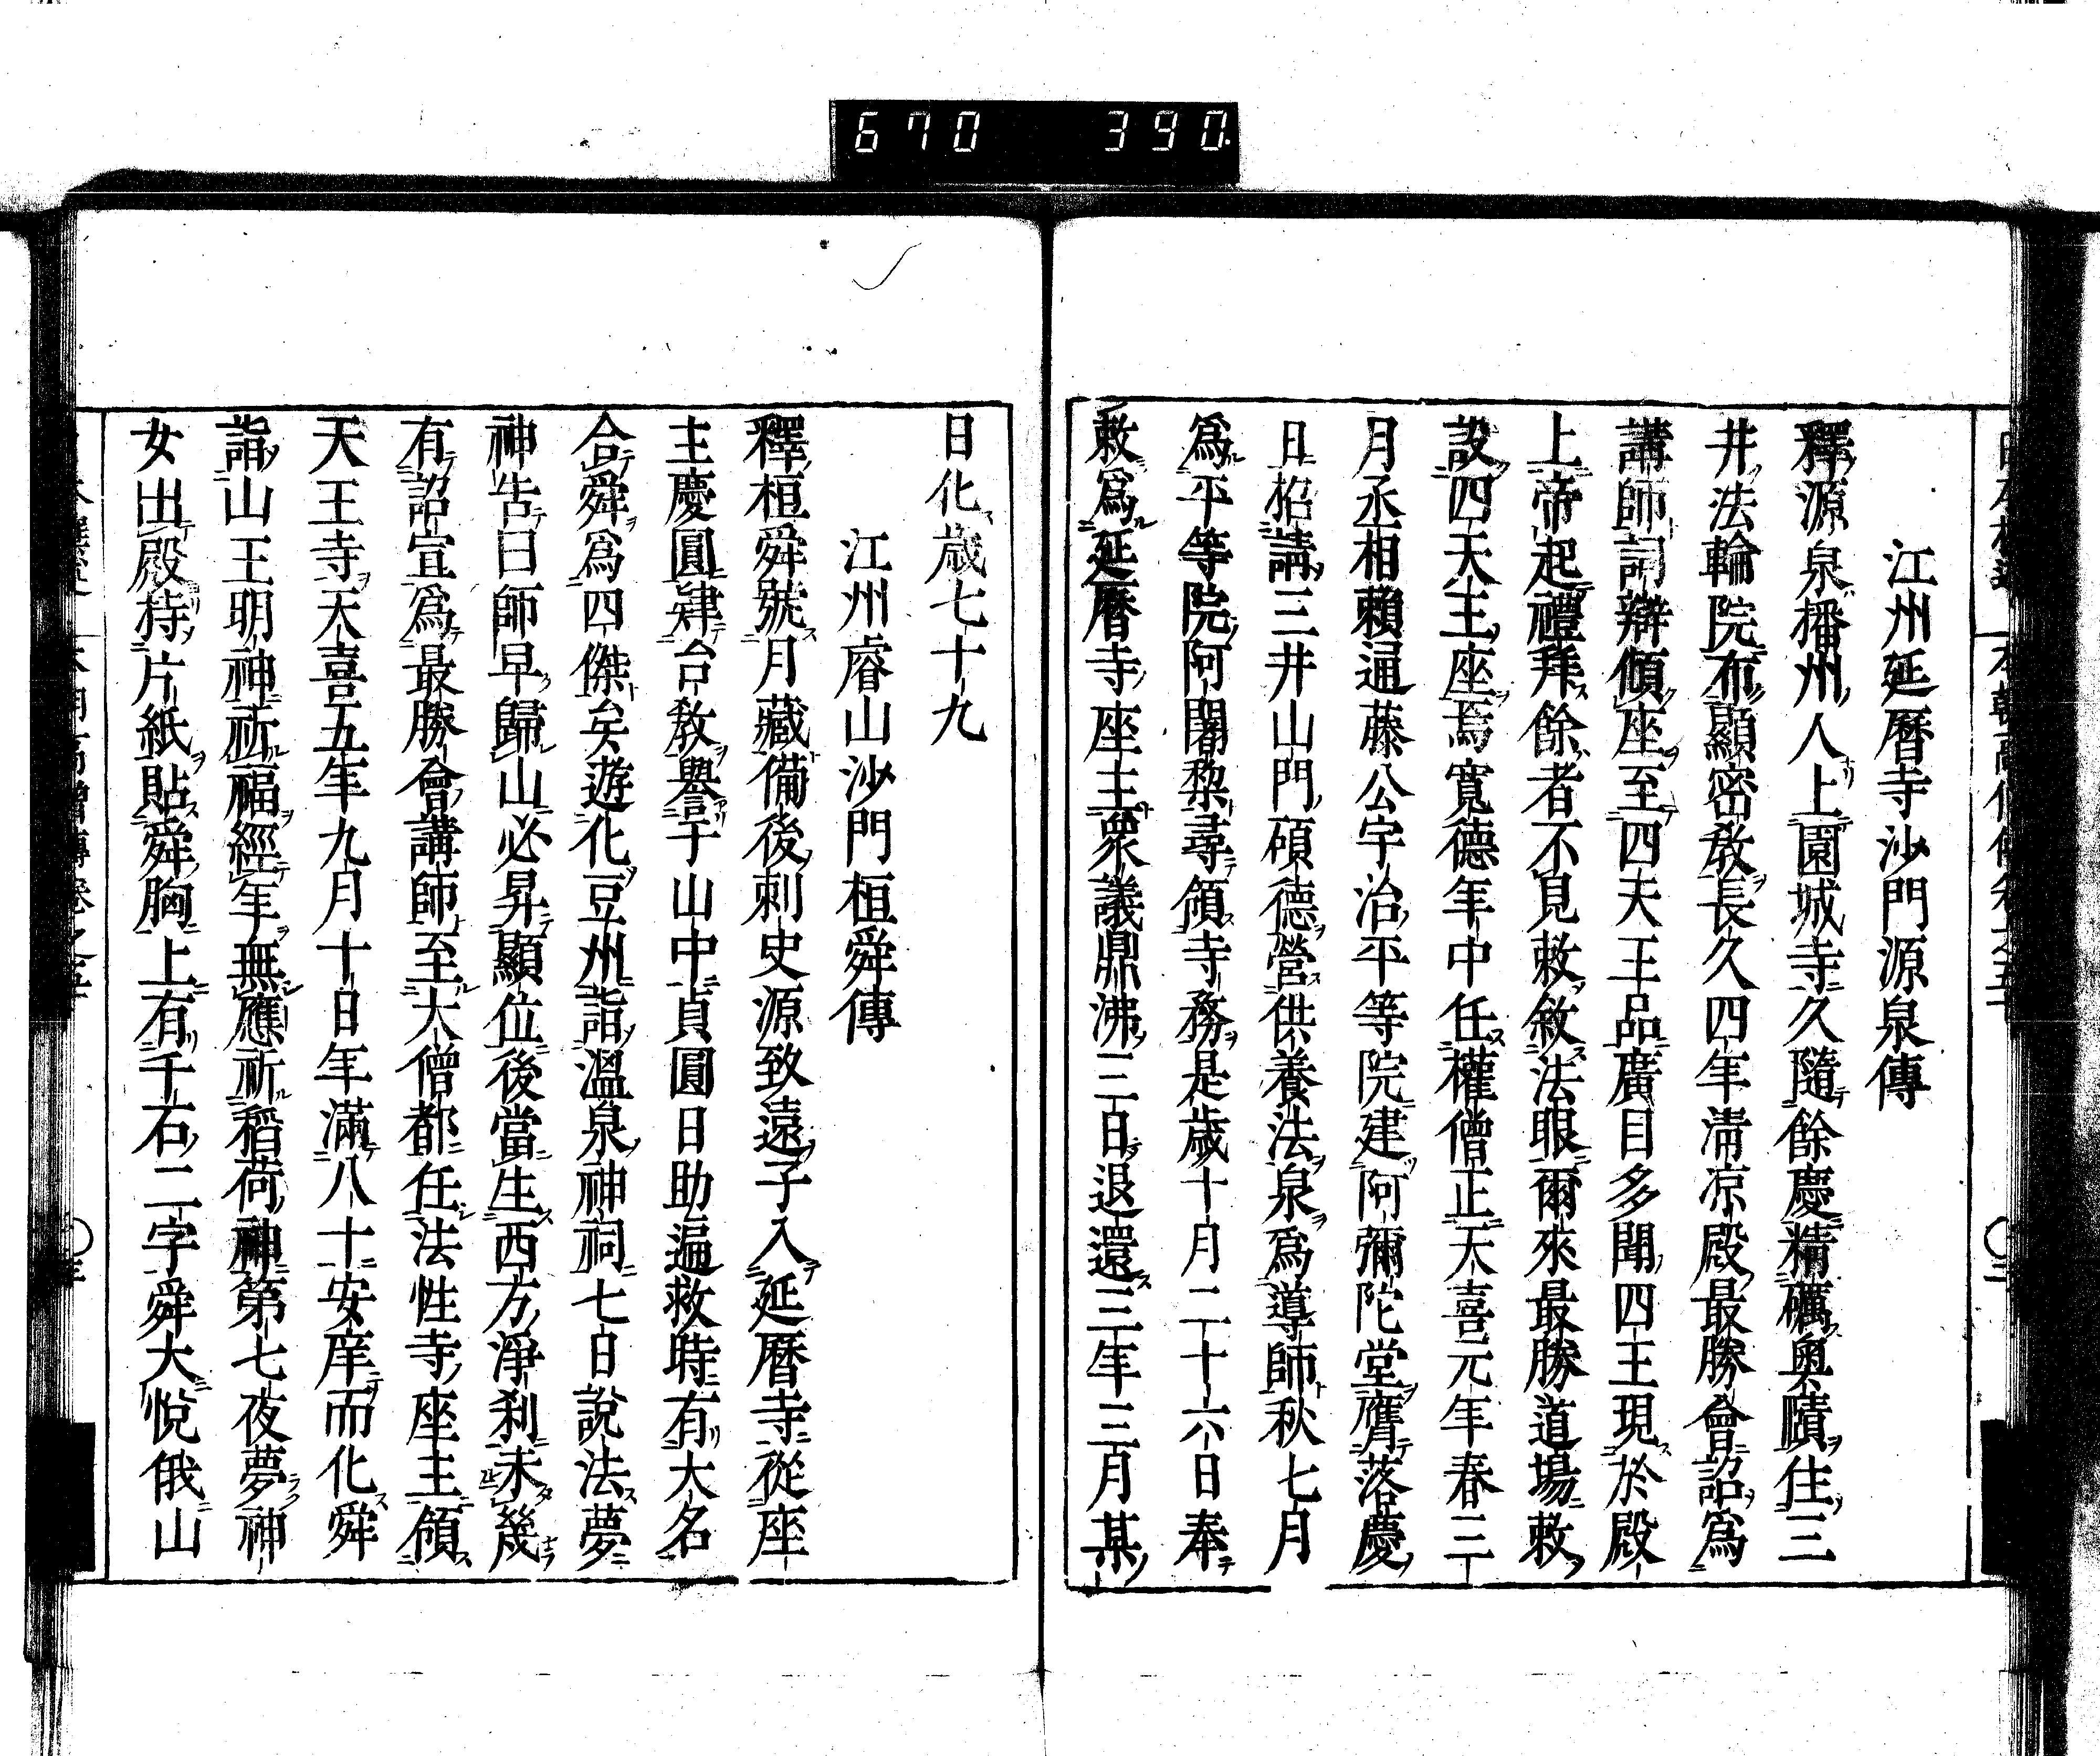 670 390
江州延曆寺沙門源泉傳
釋源泉播州人上園城寺久隨餘慶精礪奧賾住三
井法輪院布顯密教長久四年淸凉殿最勝會詔爲
講師詞辯傾座至四天王品廣目多聞四王現於殿
上帝起禮拜餘者不見敕敘法眼爾來最勝道場敕
設四天王座焉寬德年中任權僧正天喜元年春三
月丞相賴通藤公宇治平等院建阿彌陀堂膺落慶
日招請三井山門碩德營供養法泉爲導師秋七月
爲平等院阿闍黎尋領寺務是歲十月二十六日奉
敕爲延曆寺座主衆議鼎沸三日退還三年三月某
日化歲七十九
江州睿山沙門桓舜傳
釋桓舜號月藏備後刺史源致遠子入延曆寺從座
主慶圓肄台教譽于山中貞圓日助遍救時有大名
合舜爲四傑矣遊化豆州詣溫泉神祠七日說法夢
神告曰師早歸山必昇顯位後當生西方淨刹未幾
有詔宣爲最勝會講師至大僧都任法性寺座主領
天王寺天喜五年九月十日年滿八十安庠而化舜
詣山王明神祈福經年無應祈稻荷神第七夜夢神
女出殿持片紙貼舜胸上有千石二字舜大悅俄山